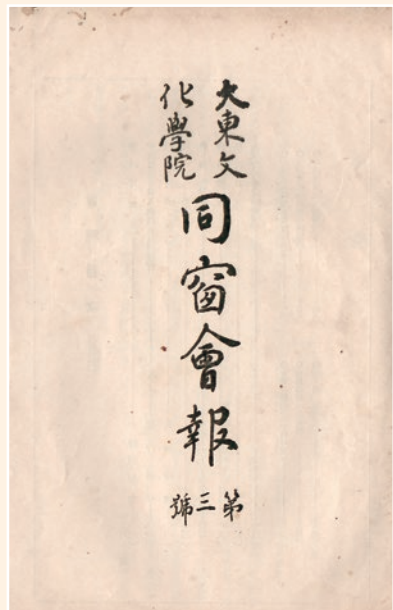 大東文
化學院
同窗會報
第三號